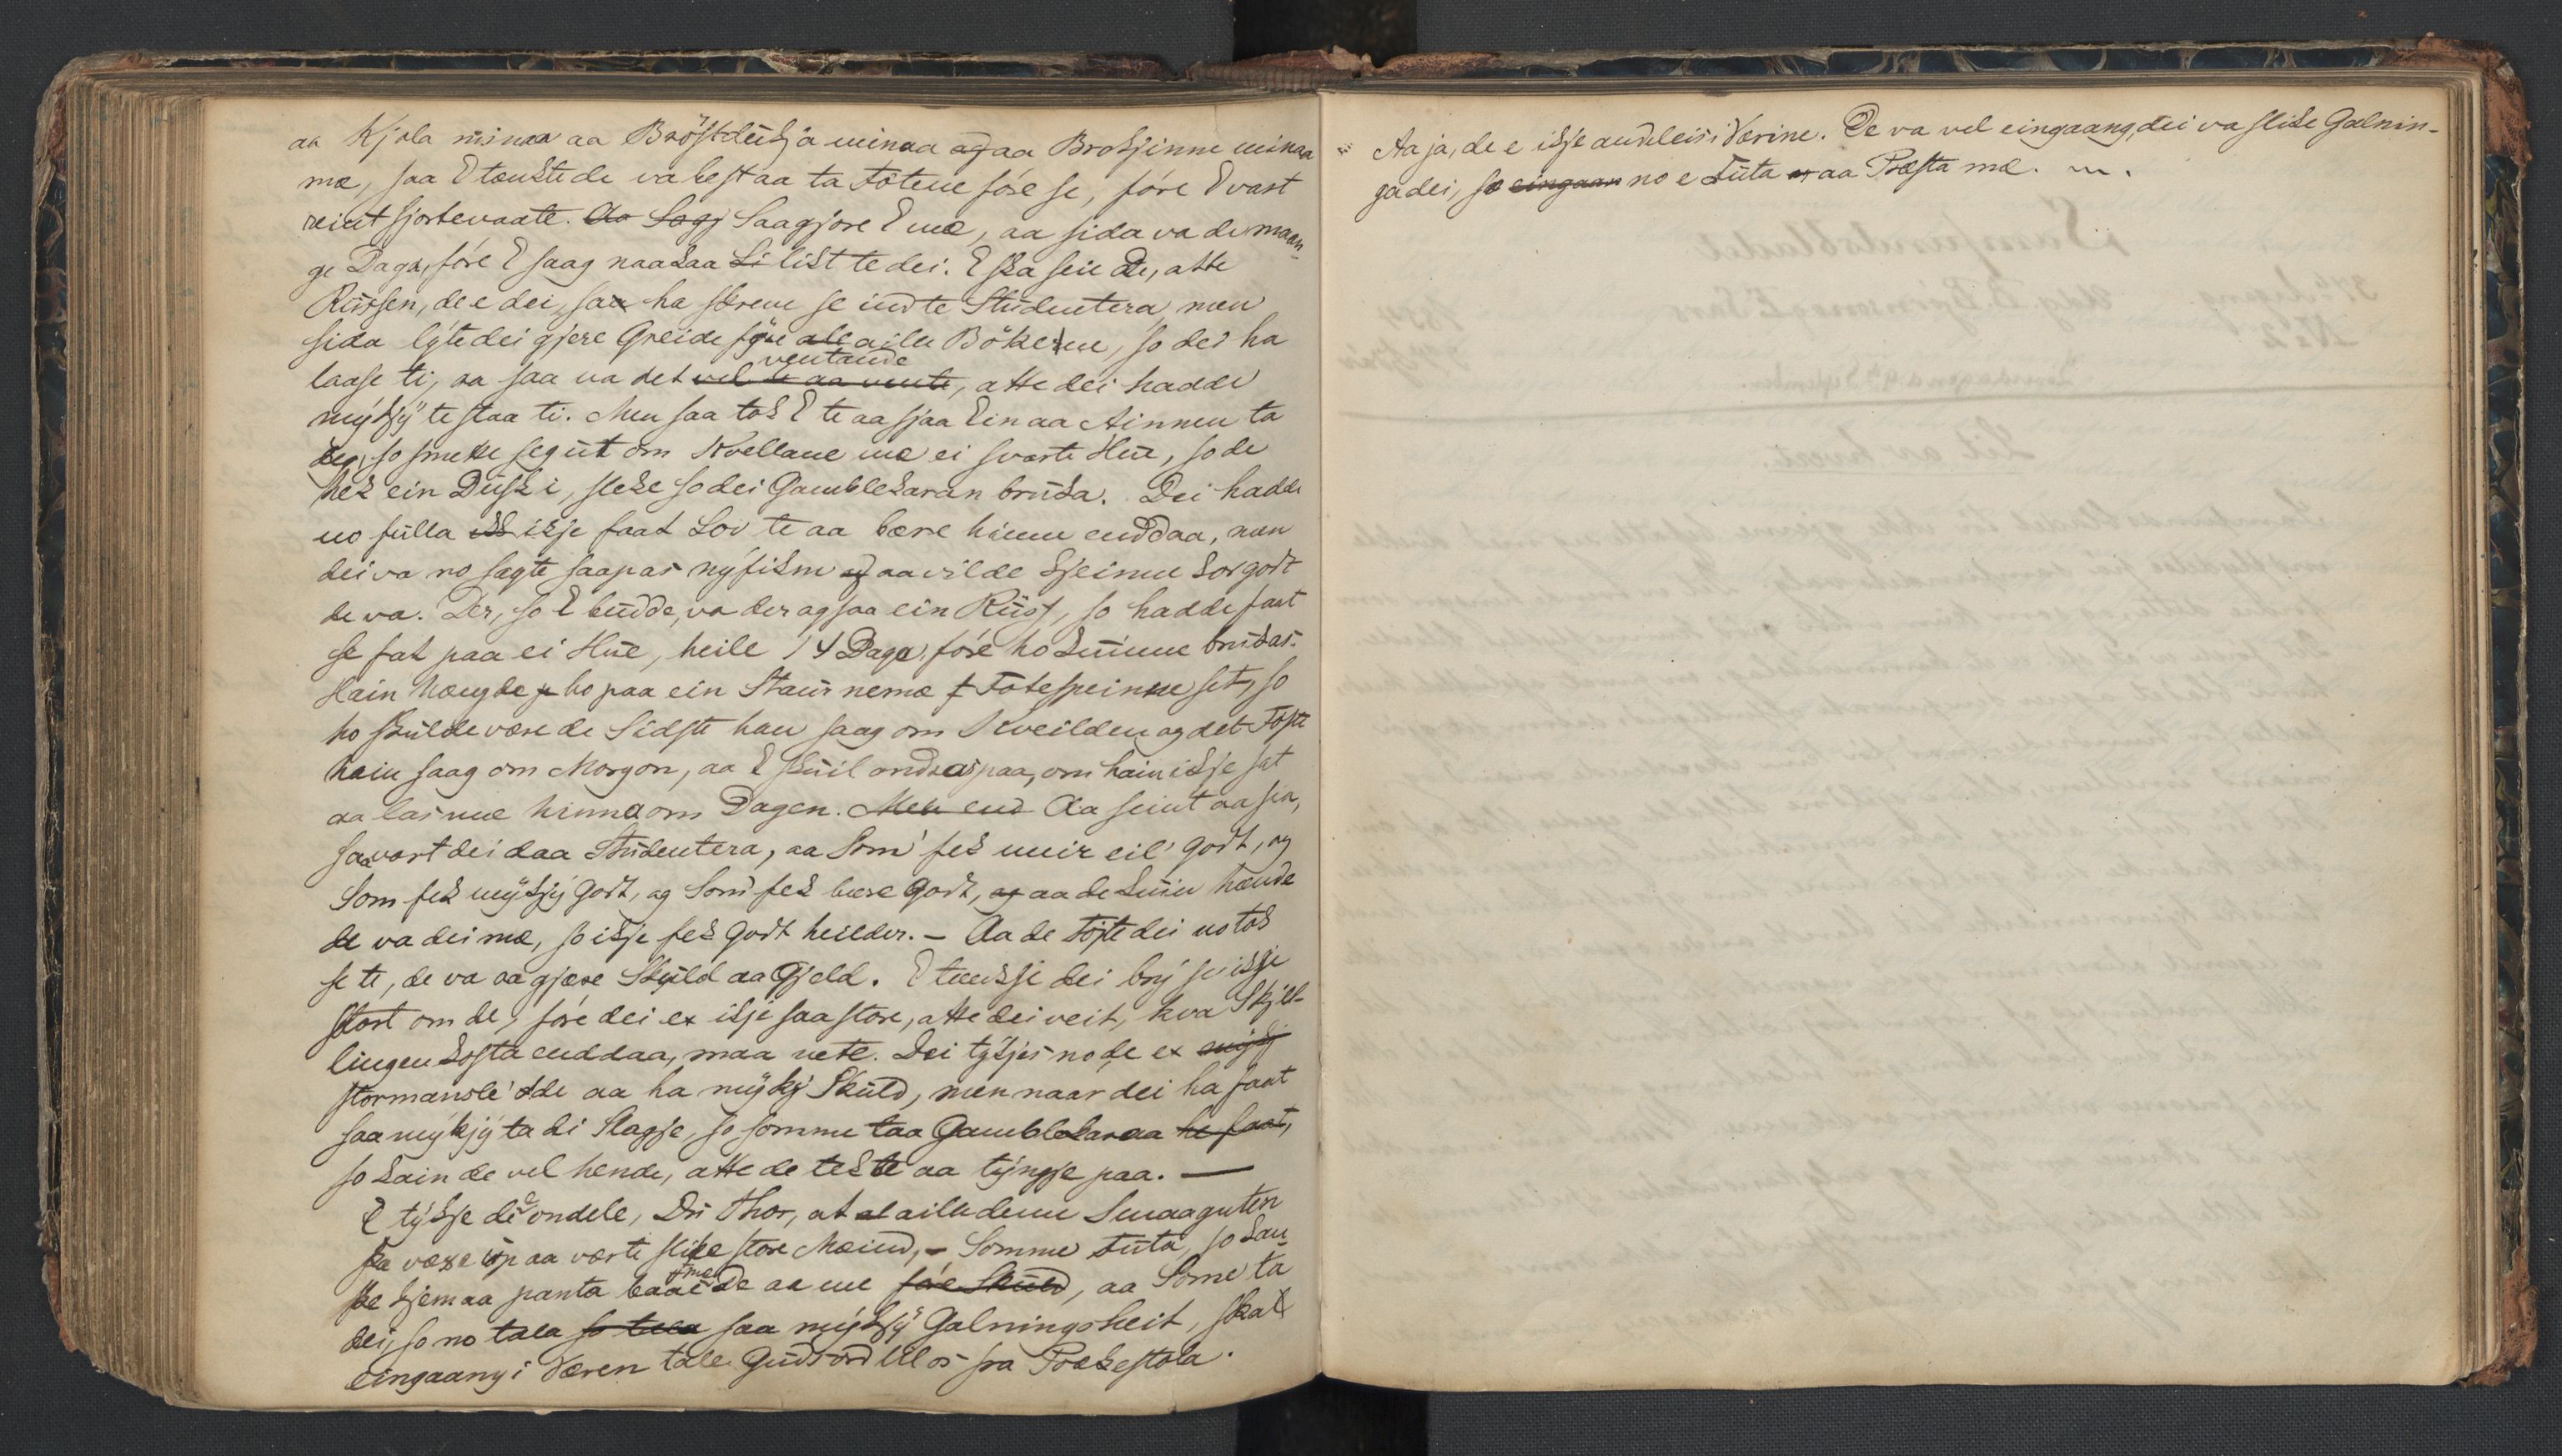 aa Kjola minaa aa Bröstdukja minaa ag aa Brokjinne minaa
mæ, saa E tænkte de va best aa ta Føtene føre se, føre E vart
reint skjortevaate. Aa Sagj Saa gjore E mæ, aa sida va de maan-
ge Daga, føre E saag naakaa Li likt te dei. E ska seie De, atte
Russen, de e dei, saa ha skreve se ind te Studentera, men
sida lyte dei gjere Greide før alle aille Bökerne, so dei ha
laase ti, aa saa va det vel te aa vente ventande, atte dei hadde
mykjy te staa ti. Men saa tok E te aa sjaa Ein aa Ainnen ta
deg, so smette seg ut om Kvellane mæ ei svarte Hue, so de
hek ein Dusk i, sleke so dei Gamblekaran bruka. Dei hadde
no fulla ikk ikje faat Lov te aa bære hinne enddaa, men
dei va no sagte saapas nyfikne ag aa vilde kjeinne kor godt
de va. Der, so E budde, va der agsaa ein Russ, so hadde faat
se fat paa ei Hue, heile 14 Daga, føre ho kuinne brukas.
Hain hængde ho paa ein Staur nemæ f Føtespeinne set, so
ho skulde være de Sidste han saag om Kveilden ag det Føste
hain saag om Morgon, aa E skuil ondras paa, om hain ikje sat
aa las mæ hinna om Dagen. Men end Aa seint aa sia,
saa vart dei daa Studentera, aa Som' fek meir eil' godt, ag
Som fek mykjy godt, ag Som fek bære godt, ag aa de kuin hænde
de va dei mæ, so ikje fek godt heilder. – Aa de Føste dei no tok
se te, de va aa gjære Skyld aa Gjeld. E tænkje dei bry se ikje
stort om de, føre dei er ikje saa store, atte dei veit, kva Skjel-
lingen kosta enddaa, maa vete. Dei tykjes no de er mykj
stormansle' de aa ha mykjy Skuld, men naar dei ha faat
saa mykjy ta di Slagje, so somme taa Gamblekaraa he faat,
so kain de vel hende, atte de tek te aa tyngje paa. —
E tykje de e ondele, Du Thor, at al aille denne Smaaguten
ska væxe op aa værte slike store Mæind, – Somme Futa, so kan-
ske kjem aa panta baade me De aa me føre Skuld, aa Some ta
dei, so no tala so tala saa mykjy Galningsheit, skal
eingaang i Væren tale Guds ord til os fra Prækestola.
Aa ja, de e ikje andeleis i Værine. De va vel eingaang, dei va slike Galnin-
ga dei, so eingaan no e Futa ag aa Præsta mæ.